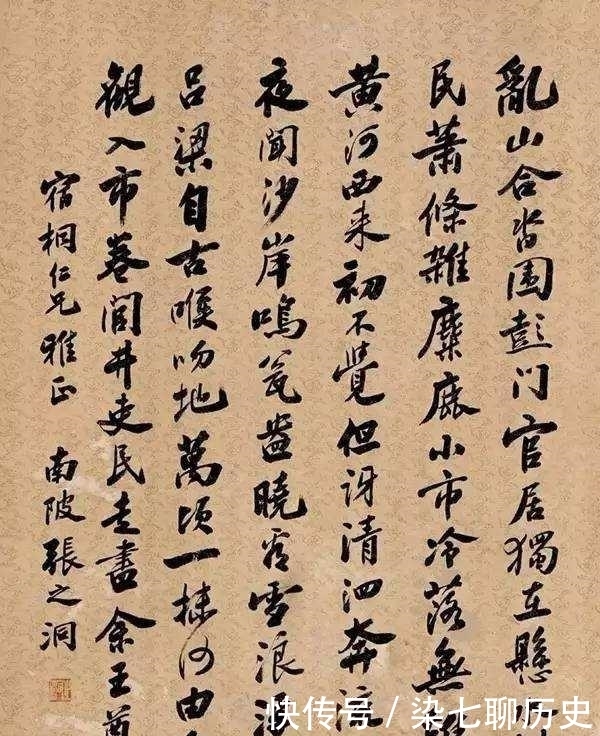 亂山合沓围彭门官居獨在懸
民蕭條雜麋鹿小市冷落無
黄河西来初不覺但訝清泗奔流
夜聞沙岸鳴瓮盎曉看雪浪
吕梁自古喉吻地萬頃一抹何由
觀入市卷閭井吏民走盡余王尊
宿桐仁兄雅正 南陂張之洞
快传号 / 染七聊历史